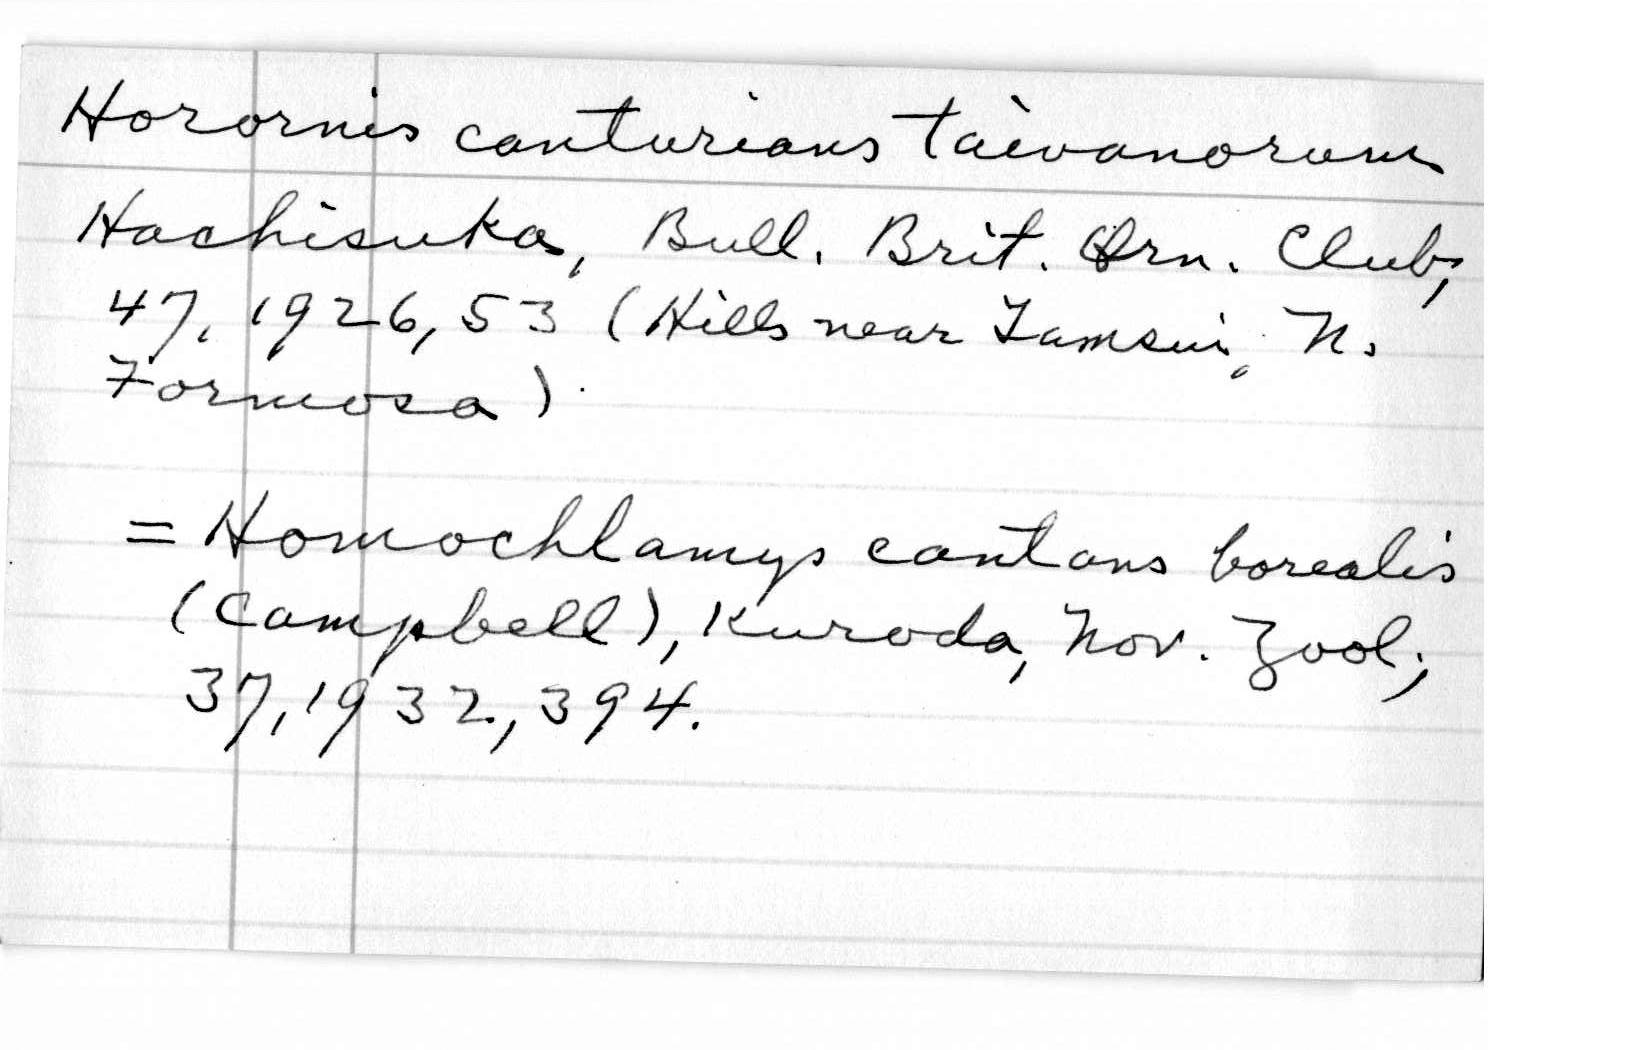 Horornis canturians taivanorum
Hachisuka, Bull. Brit. Orn. Club,
47, 1926, 53 (Hills near Tamsui, N.
Formosa).
= Homochlamys cantans borealis
(Campbell), Kuroda, Nov. Zool.,
37, 1932, 394.